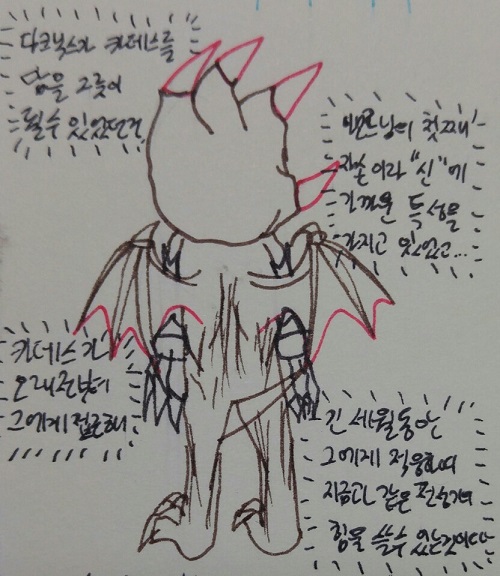 다크닉스가 카데스를
담을 그릇이
될수 있었던건
번뜨남이 첫째
자손이라 "신"에
가까운 특성을
가지고 있었고...
카데스가
오래전부터
그에게 접근해
긴 세월동안
그에게 적응하며
지금과 같은 전성기의
힘을 쓸수 있는것이다